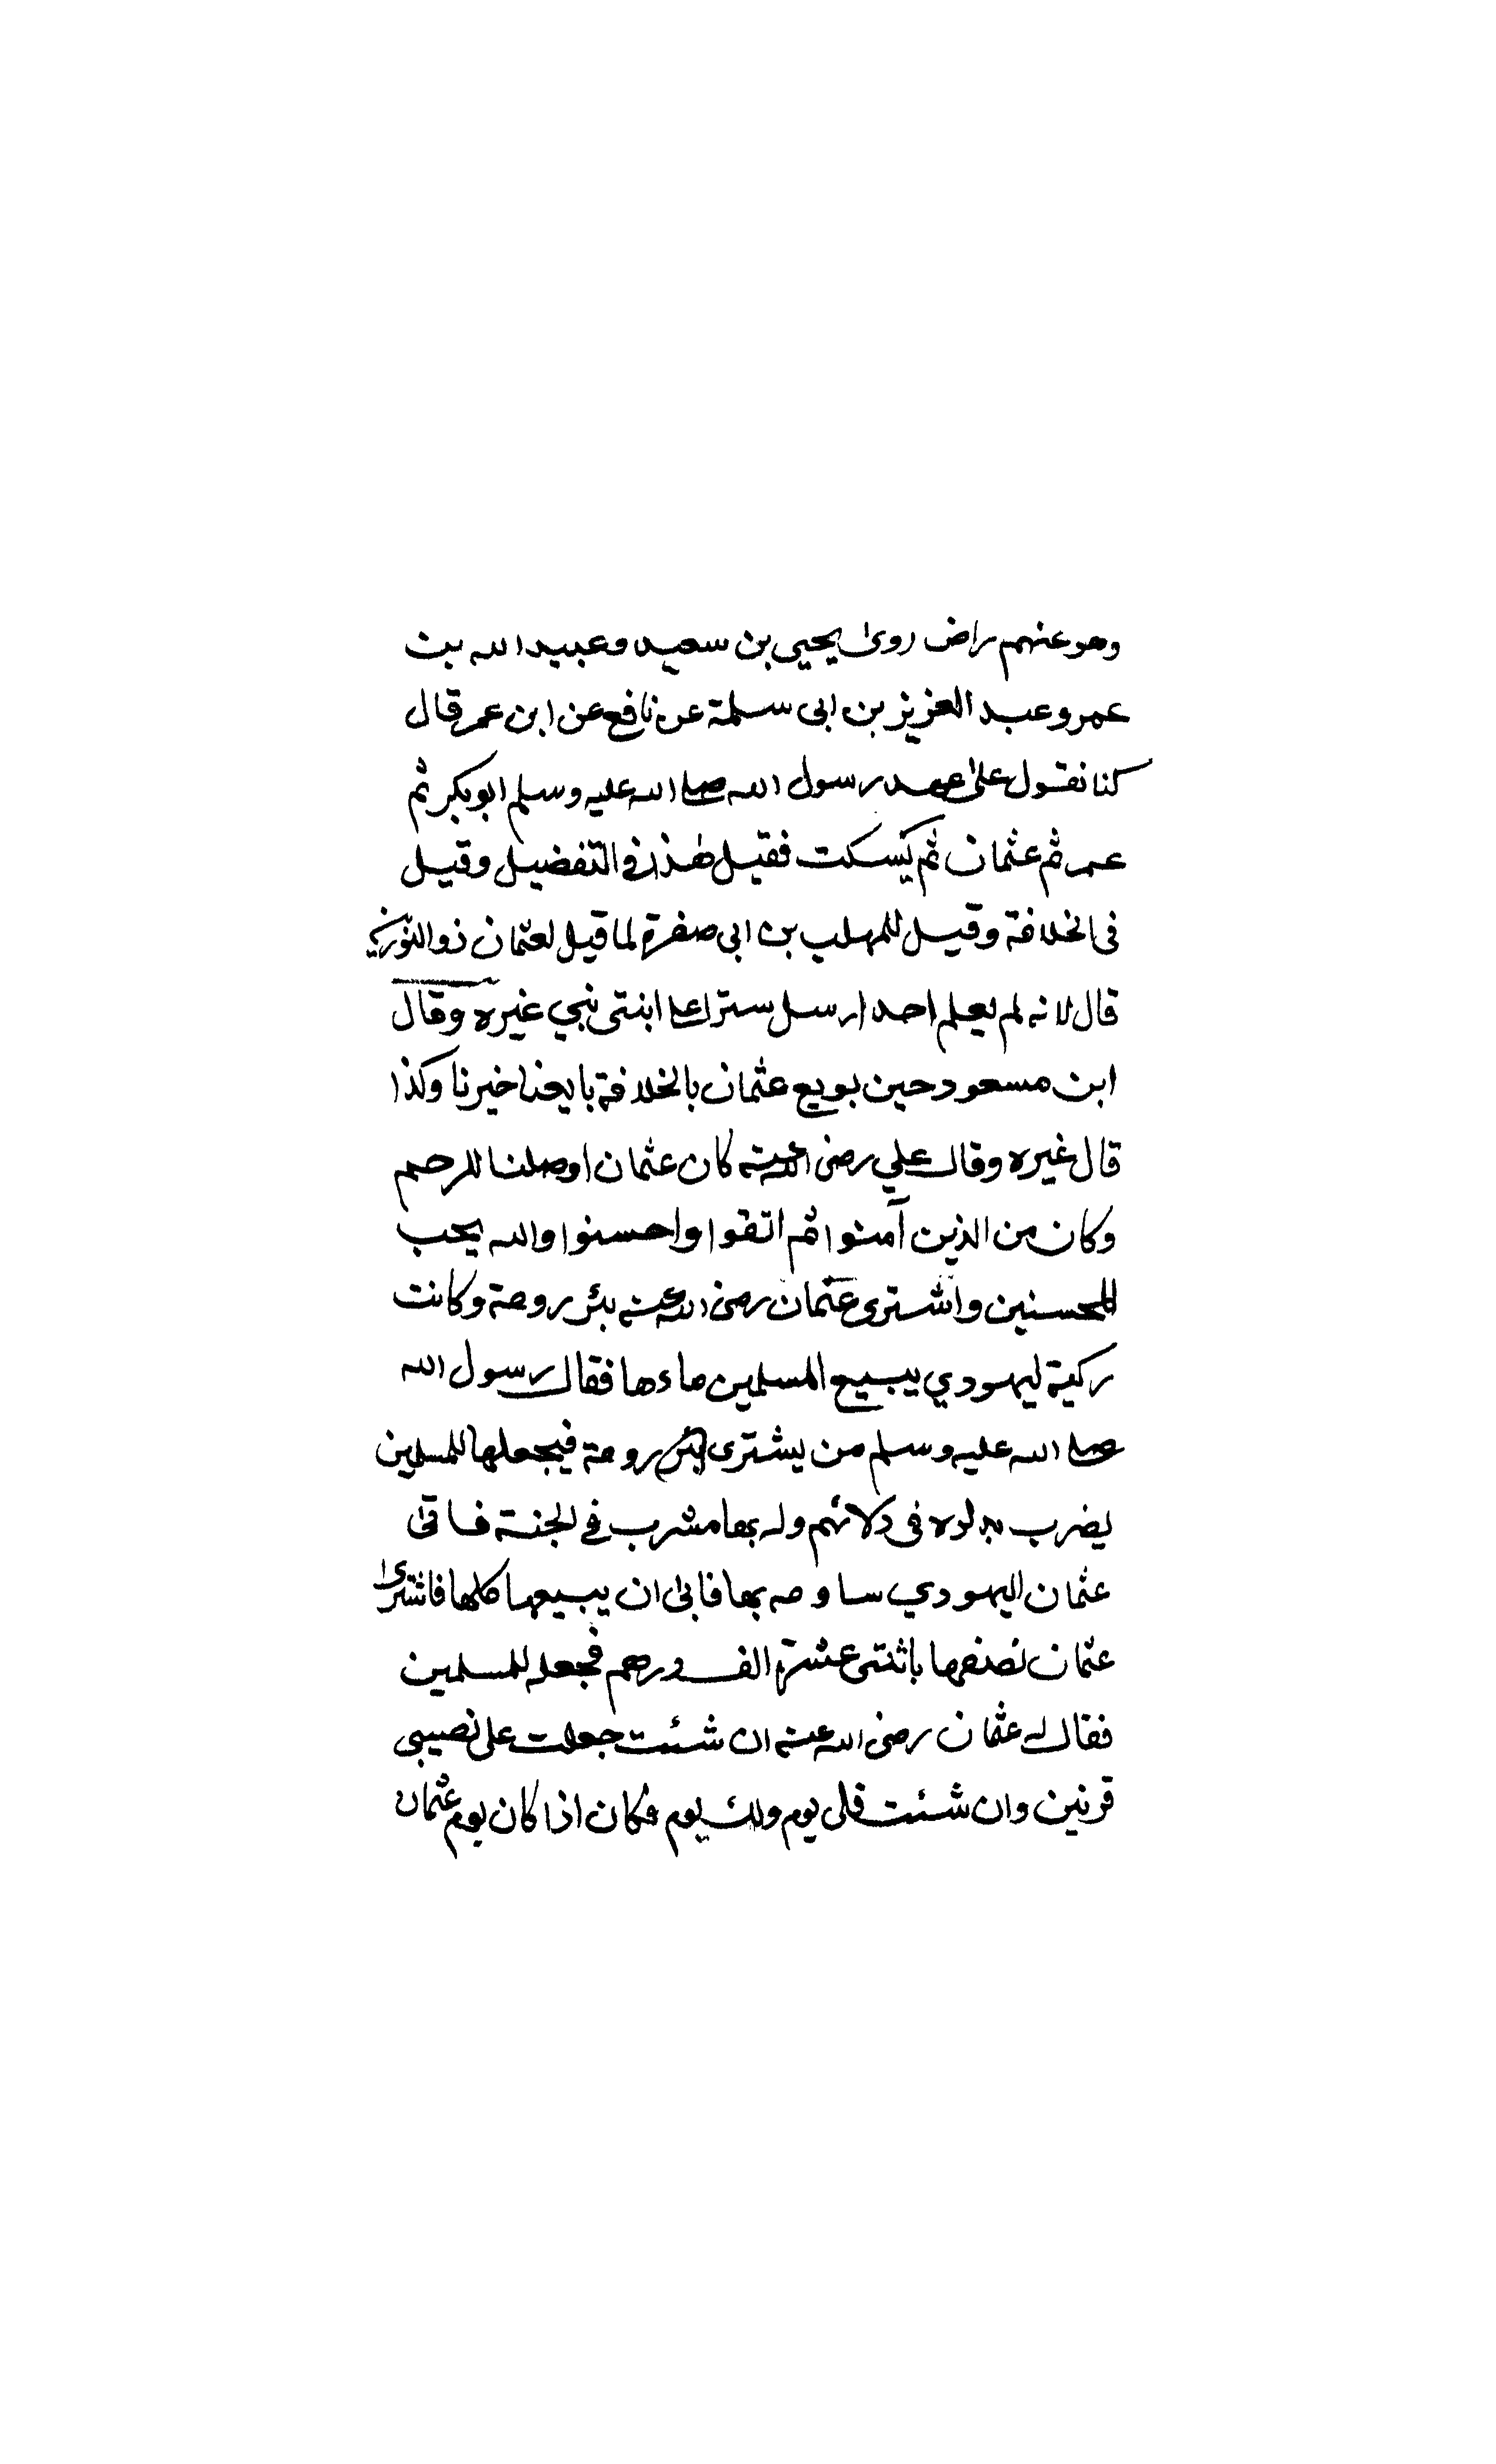 وهو عنهم راض روى يحيى بن سعيد وعبيد الله بن
عمر وعبد العزيز بن ابى سلمة عن نافع عن ابن عمر قال
كنا نقول على عهد رسول الله صلى الله عليه وسلم ابو بكر ثم
عمر ثم عثمان ثم نسكت فقيل هذا فى التفضيل وقيل
فى الخلافة وقيل للمهلب بن ابى صفرة لما قيل لعثمان ذو النورين
قال لانه لم يعلم احد ارسل سترا على ابنتى نبي غيره وقال
ابن مسعود حين بويع عثمان بالخلافة بايعنا خيرنا وكذا
قال غيره وقال علي رضى الله عنه كان عثمان اوصلنا للرحم
وكان من الذين آمنوا ثم اتقوا واحسنوا والله يحب
المحسنين واشترى عثمان رضى الله عنه بئر رومة وكانت
ركية ليهودي يبيع المسلمين ماءها فقال رسول الله
صلى الله عليه وسلم من يشترى بئر رومة فيجعلها للمسلمين
يضرب بدلوه فى دلائهم وله بها مشرب فى الجنة فاتى
عثمان اليهودي ساومه بها فابى ان يبيعها كلها فاشترى
عثمان نصفها باثنتى عشرة الف درهم فجعله للمسلمين
فقال له عثمان رضى الله عنه ان شئت جعلت على نصيبى
قرنين وان شئت فلى يوم ولك يوم فكان اذا كان يوم عثمان